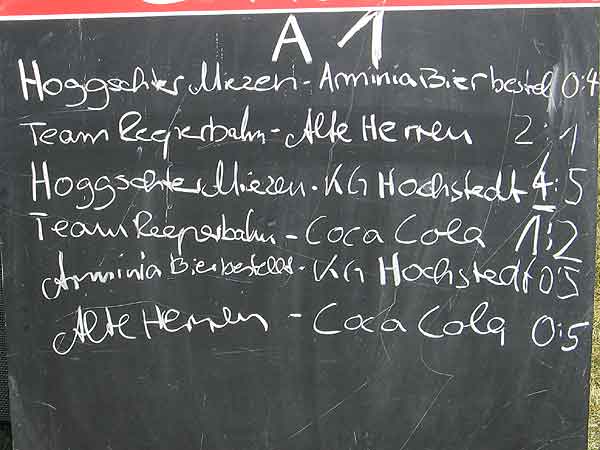 A 1
Hoggschter Miezen - Arminia Bierbestell 0:4
Team Reeperbahn - Alte Herren 2:1
Hoggschter Miezen - KG Hochstedt 4:5
Team Reeperbahn - Coca Cola 1:2
Arminia Bierbestellt - KG Hochstedt 0:5
Alte Herren - Coca Cola 0:5